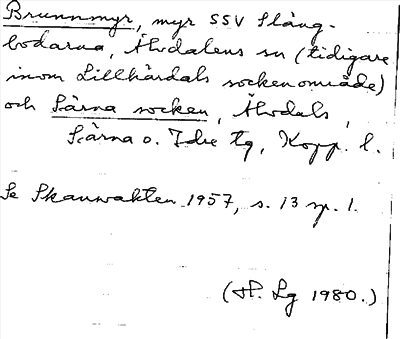 Brunnmyr, myr SSV Slång-
bodarna, Älvdalens sn (tidigare
inom Lillhärdals sockenområde)
och Särna socken, Älvdals,
Särna o. Idre tg, Kopp. l.
Se Skanvakten 1957, s. 13 sp. 1.
(H. Lg 1980.)